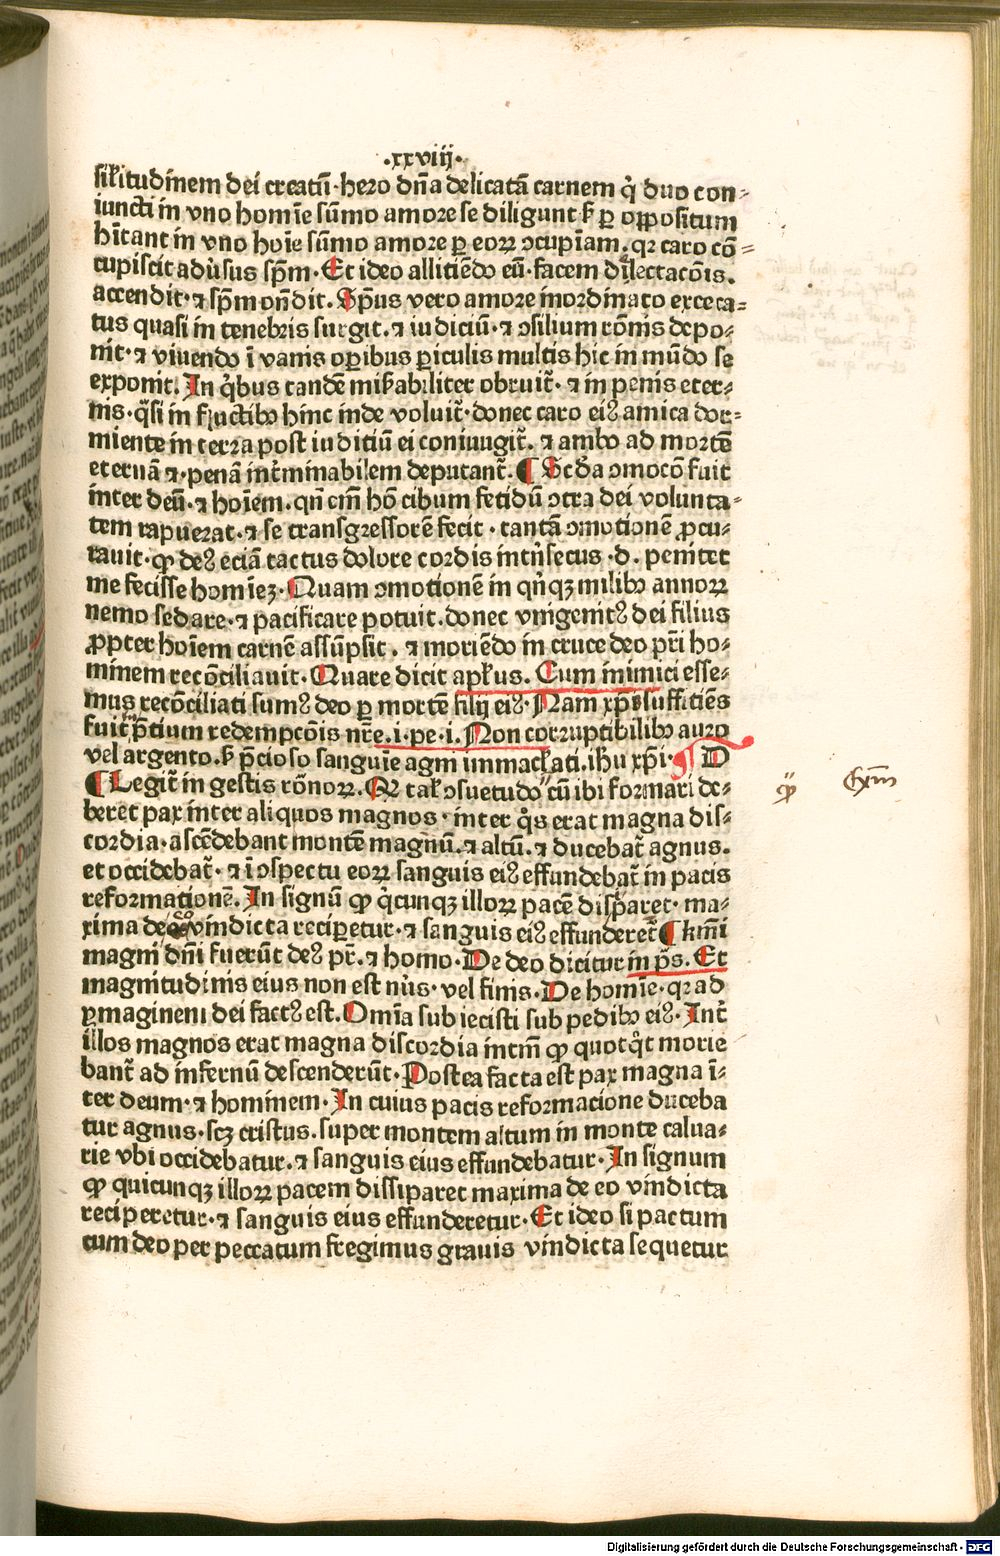 ·xxviij·
sil̄itudinem dei creatū· hero dn̄a delicatā carnem q̇ duo con⸗
iuncti in vno homīe sūmo amore se diligunt ẜ ꝑ oppositum
hītant in vno hoīe sūmo amore ꝑ eoꝝ ↄcupīam. qꝛ caro cō⸗
cupiscit aduͥsus spm̄· Et ideo allitiēdo eū· facem dilectacōis.
accendit· ⁊ spm̄ on̄dit. Spūs vero amore inordinato exceca⸗
tus quasi in tenebris surgit. ⁊ iudiciū· ⁊ ↄsilium rōnis depo⸗
nit· ⁊ viuendo ī vanis oꝑibus ꝑiculis multis hic in mūdo se
exponit. In q̇bus tandē mirabiliter obruit̄· ⁊ in penis eter⸗
nis· q̄si in fluctibꝫ hinc inde voluit̄· donec caro eiꝰ amica dor⸗
miente in terra post iuditiū ei coniungit̄. ⁊ ambo ad mortē
eternā ⁊· penā int̄minabilem deputant̄. ¶ Scd̄a ↄmocō fuit
inter deū· ⁊ hoīem. qn̄ cm̄ hō cibum fetidū ↄtra dei volunta⸗
tem rapuerat· ⁊ se transgressorē fecit · tantā ↄmotionē ꝓcu⸗
rauit· ꝙ deꝰ eciā tactus dolore cordis intn̄secus ·d. penitet
me fecisse homīeꝫ· Quam ↄmotionē in qn̄qꝫ milibꝫ annoꝝ
nemo sedare· ⁊ pacificare potuit. donec vnigenitꝰ dei filius
ꝓpter hoīem carnē assūpsit. ⁊ moriēdo in cruce deo pr̄i ho⸗
minem recōciliauit· Quare dicit apl̄us. Cum inimici esse⸗
mus recōciliati sumꝰ deo ꝑ mortē filij eiꝰ· Nam xp̄s suffitiēs
fuit p̄tium redempcōis nr̄e.i. pe· i. Non corruptibilibꝫ auro
vel argento. ẜ p̄cioso sanguīe agni immacl̄ati. ih̄u xp̄i· ¶ D
¶ Legit̄ in gestis rōnoꝝ. Qꝛ tal̄ ↄsuetudo cū ibi formari de⸗
beret pax inter aliquos magnos · inter q̊s erat magna dis⸗
cordia· ascēdebant montē magnū. ⁊ altū. ⁊ ducebat̄ agnus.
et occidebat̄· ⁊ ī ↄspectu eoꝝ sanguis eiꝰ effundebat̄ in pacis
reformationē. In signū ꝙ q̇cunqꝫ illoꝝ pacē disꝑaret· ma⸗
xima de eo vindicta reciꝑetur· ⁊ sanguis eiꝰ effunderet̄ ¶ Km̄i
magni dn̄i fuerūt deꝰ pr̄. ⁊ homo· De deo dicitur in ps̄. Et
magnitudinis eius non est nu̇s· vel finis. De homīe· qꝛ ad
ymaginem dei factꝰ est. Omīa subiecisti sub pedibꝫ eiꝰ. Int̄
illos magnos erat magna discordia intm̄ ꝙ quotq̇t morie
bant̄ ad infernū descenderūt· Postea facta est pax magna ī⸗
ter deum· ⁊ hominem· In cuius pacis reformacione duceba
tur agnus· scꝫ cristus. super montem altum in monte calua⸗
rie vbi occidebatur. ⁊ sanguis eius effundebatur· In signum
ꝙ quicunqꝫ illoꝝ pacem dissiparet maxima de eo vindicta
reciperetur· ⁊ sanguis eius effunderetur· Et ideo si pactum
cum deo per peccatum fregimus grauis vindicta sequetur
Digitalisierung gefördert durch die Deutsche Forschungsgemeinschaft · DFG